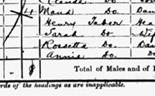 Maud Do Dau
Henry Tabor Hea
Sarah Do Wif
Rosetta Do Dau
Annie Do
Total of Males and of F
rds of the headings as are inapplicable.